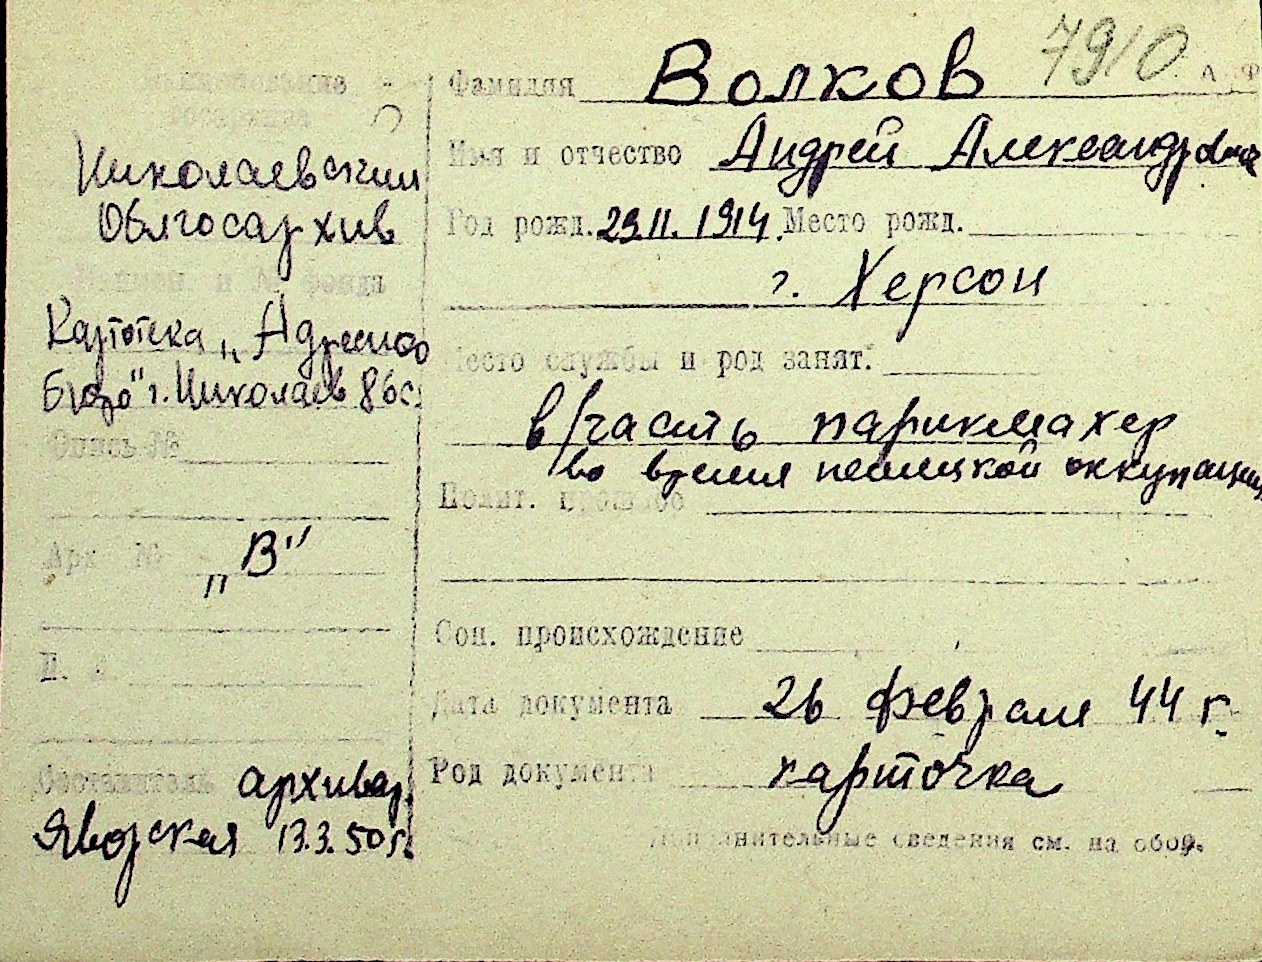 7910
А Ф
Наименование
госархива
Николаевский
Облгосархив
Наимен. и № фонда
Картотека „Адресного
бюро" г. Николаев
Опись №
Арх №
„В"
Составитель архивар.
Яворская 13.3.50г.
Фамилия Волков
Имя и отчество Андрей Александрович
Год рожд. 29.11.1914. Место рожд.
г. Херсон
Место службы и род занят.
в/часть парикмахер
во время немецкой оккупации
Полит. прошлое
Соц. происхождение
Дата документа 26 февраля 44 г.
Род документа карточка
Дополнительные сведения см. на обор.